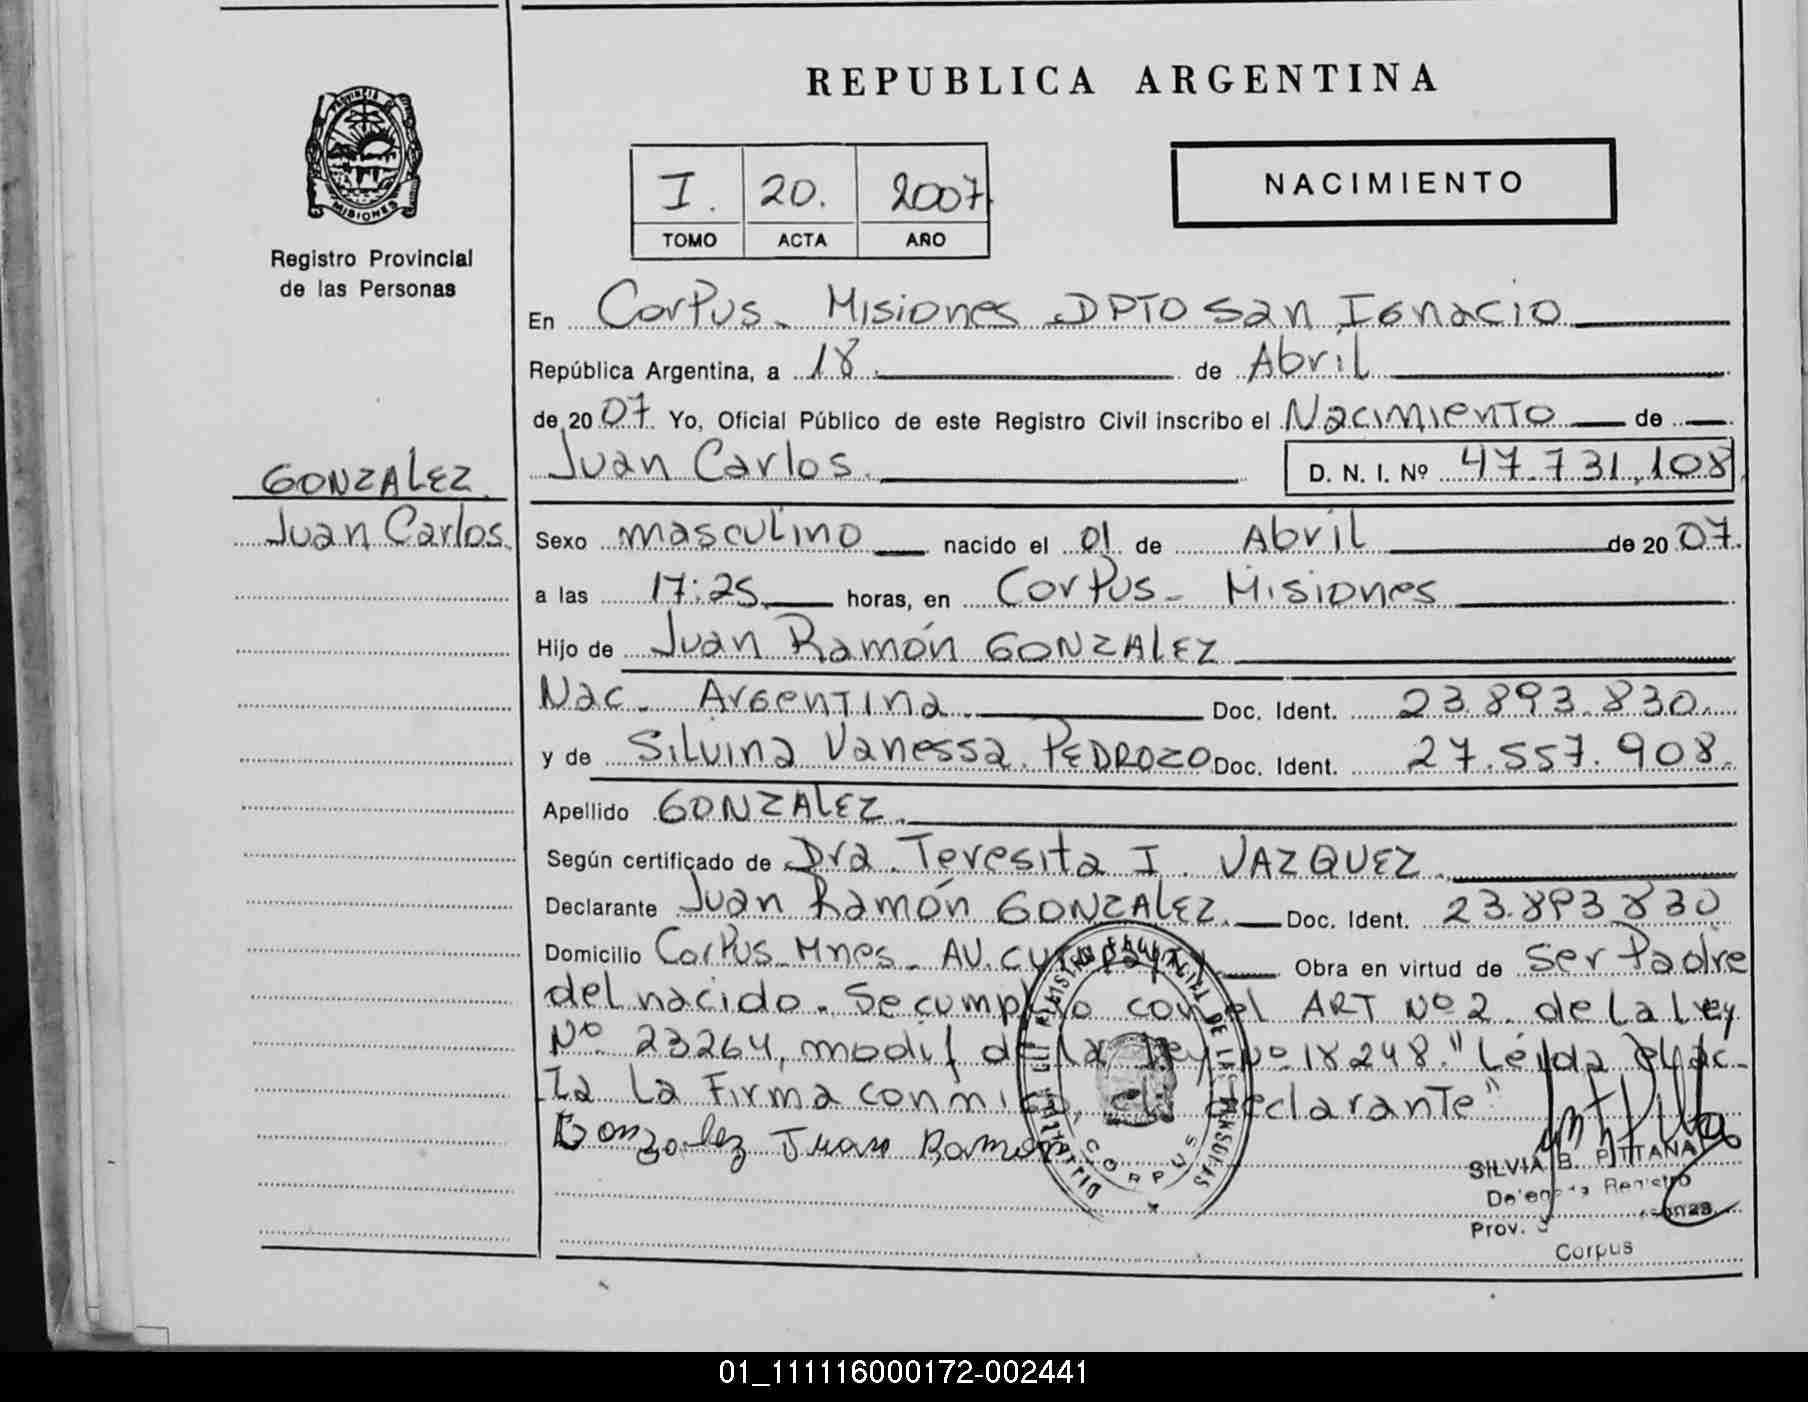 REPUBLICA ARGENTINA
PROVINCIA DE
MISIONES
Registro Provincial
de las Personas
I. 20. 2007
TOMO ACTA AÑO
NACIMIENTO
En Corpus - Misiones DPTO San Ignacio
República Argentina, a 18 de Abril
de 2007 Yo, Oficial Público de este Registro Civil inscribo el Nacimiento de
Juan Carlos. D. N. I. Nº 47.731.108
GONZALEZ
Juan Carlos.
Sexo masculino nacido el 01 de Abril de 2007.
a las 17:25 horas, en Corpus - Misiones
Hijo de Juan Ramón GONZALEZ
Nac. Argentina. Doc. Ident. 23.893.830.
y de Silvina Vanessa PEDROZO Doc. Ident. 27.557.908.
Apellido GONZALEZ.
Según certificado de Dra. Teresita I. VAZQUEZ.
Declarante Juan Ramón GONZALEZ. Doc. Ident. 23.893.830
Domicilio Corpus - Mnes - AV. Obra en virtud de Ser Padre
del nacido. Se cumplio con el ART Nº 2 de la Ley
Nº 23264, modif de la Ley Nº 18248. "Leída el Ac-
ta La Firma conmigo, el declarante"
Gonzalez Juan Ramon
CORPUS
SILVIA B. PITTANA
Registro
Prov.
Corpus
01_111116000172-002441